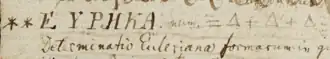 ** E Υ Ρ Η Κ Α. num. = Δ + Δ + Δ
Determinatio Euleriana formarum in q